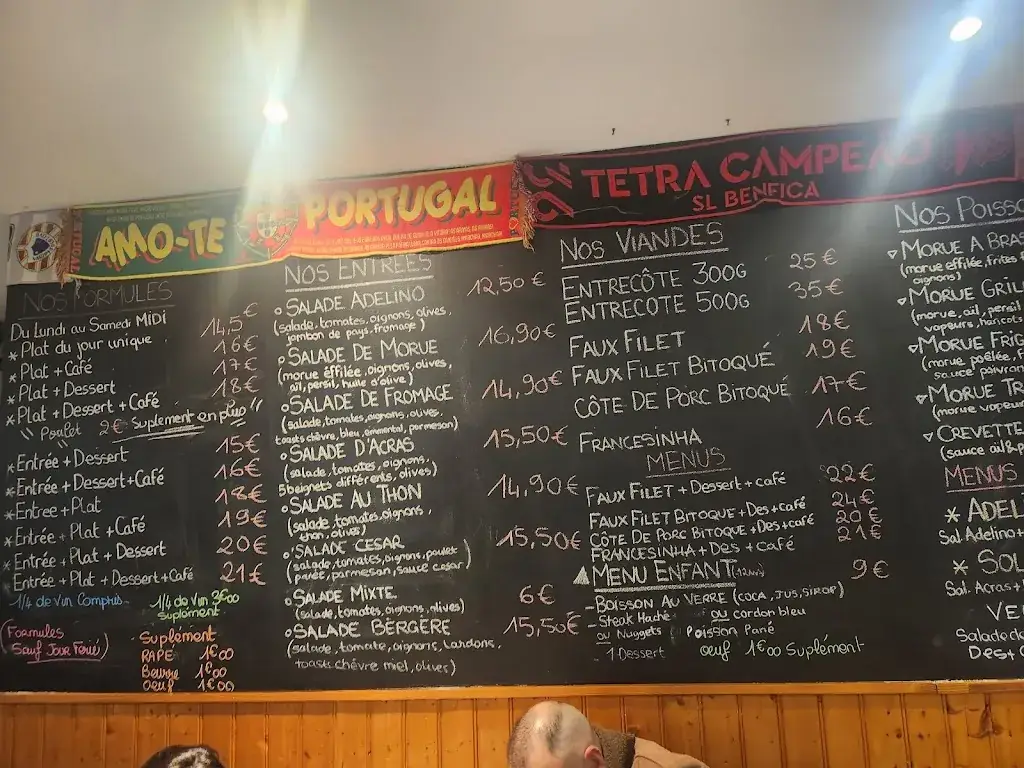 AMO-TE
PORTUGAL
TETRA CAMPEÃO
SL BENFICA
NOS FORMULES
Du Lundi au Samedi MIDI
* Plat du jour unique 14,5€
* Plat + Café 16€
* Plat + Dessert 17€
* Plat + Dessert + Café 18€
"Poulet 2€ Suplement en plus"
* Entrée + Dessert 15€
* Entrée + Dessert + Café 16€
* Entree + Plat 18€
* Entrée + Plat + Café 19€
* Entrée + Plat + Dessert 20€
Entrée + Plat + Dessert + Café 21€
1/4 de Vin Compris
1/4 de Vin 3€00
suplement
(Formules
Sauf Jour Férié)
Suplément
RAPE 1€00
Beurre 1€00
Oeuf 1€00
NOS ENTRÉES
SALADE ADELINO 12,50€
(salade, tomates, oignons, olives,
jambon de pays, fromage)
SALADE DE MORUE 16,90€
(morue éffilée, oignons, olives,
ail, persil, huile d'olive)
SALADE DE FROMAGE 14,90€
(salade, tomates, oignons, olives,
toasts chèvre, bleu, emmental, parmeson)
SALADE D'ACRAS 15,50€
(salade, tomates, oignons,
5 beignets différents, olives)
SALADE AU THON 14,90€
(salade, tomates, oignons,
thon, olives)
SALADE CESAR 15,50€
(salade, tomates, oignons, poulet
pané, parmeson, sauce cesar)
SALADE MIXTE 6€
(salade, tomates, oignons, olives)
SALADE BERGÈRE 15,50€
(salade, tomate, oignons, lardons,
toasts chèvre miel, olives)
NOS VIANDES
ENTRECÔTE 300G 25€
ENTRECOTE 500G 35€
FAUX FILET 18€
FAUX FILET BITOQUÉ 19€
CÔTE DE PORC BITOQUÉ 17€
FRANCESINHA 16€
MENUS
FAUX FILET + Dessert + café 22€
FAUX FILET BITOQUE + Des + café 24€
CÔTE DE PORC BITOQUE + Des + café 20€
FRANCESINHA + Des + Café 21€
MENU ENFANT 9€
- BOISSON AU VERRE (COCA, JUS, SIROP)
- Steak Haché ou cordon bleu
ou Nuggets Poisson Pané
- 1 Dessert oeuf 1€00 Suplément
NOS POISSO
MORUE A BRAS
(morue effilée, frites
oignons)
MORUE GRIL
(morue, ail, persil
vapeurs, haricots
MORUE FRI
(morue poêlée, f
sauce poivron
MORUE TR
(morue vapeur
CREVETTE
(sauce ail & p
MENUS
* ADEL
Sal. Adelino +
* SOL
Sal. Acras +
VE
Salade d
Des + C